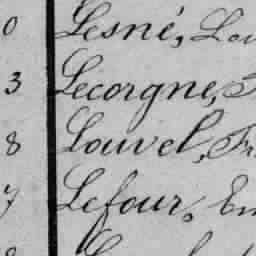 0 Lesné, Lou
3 Lecorgne,
8 Louvel, Fr
7 Lefour, Em